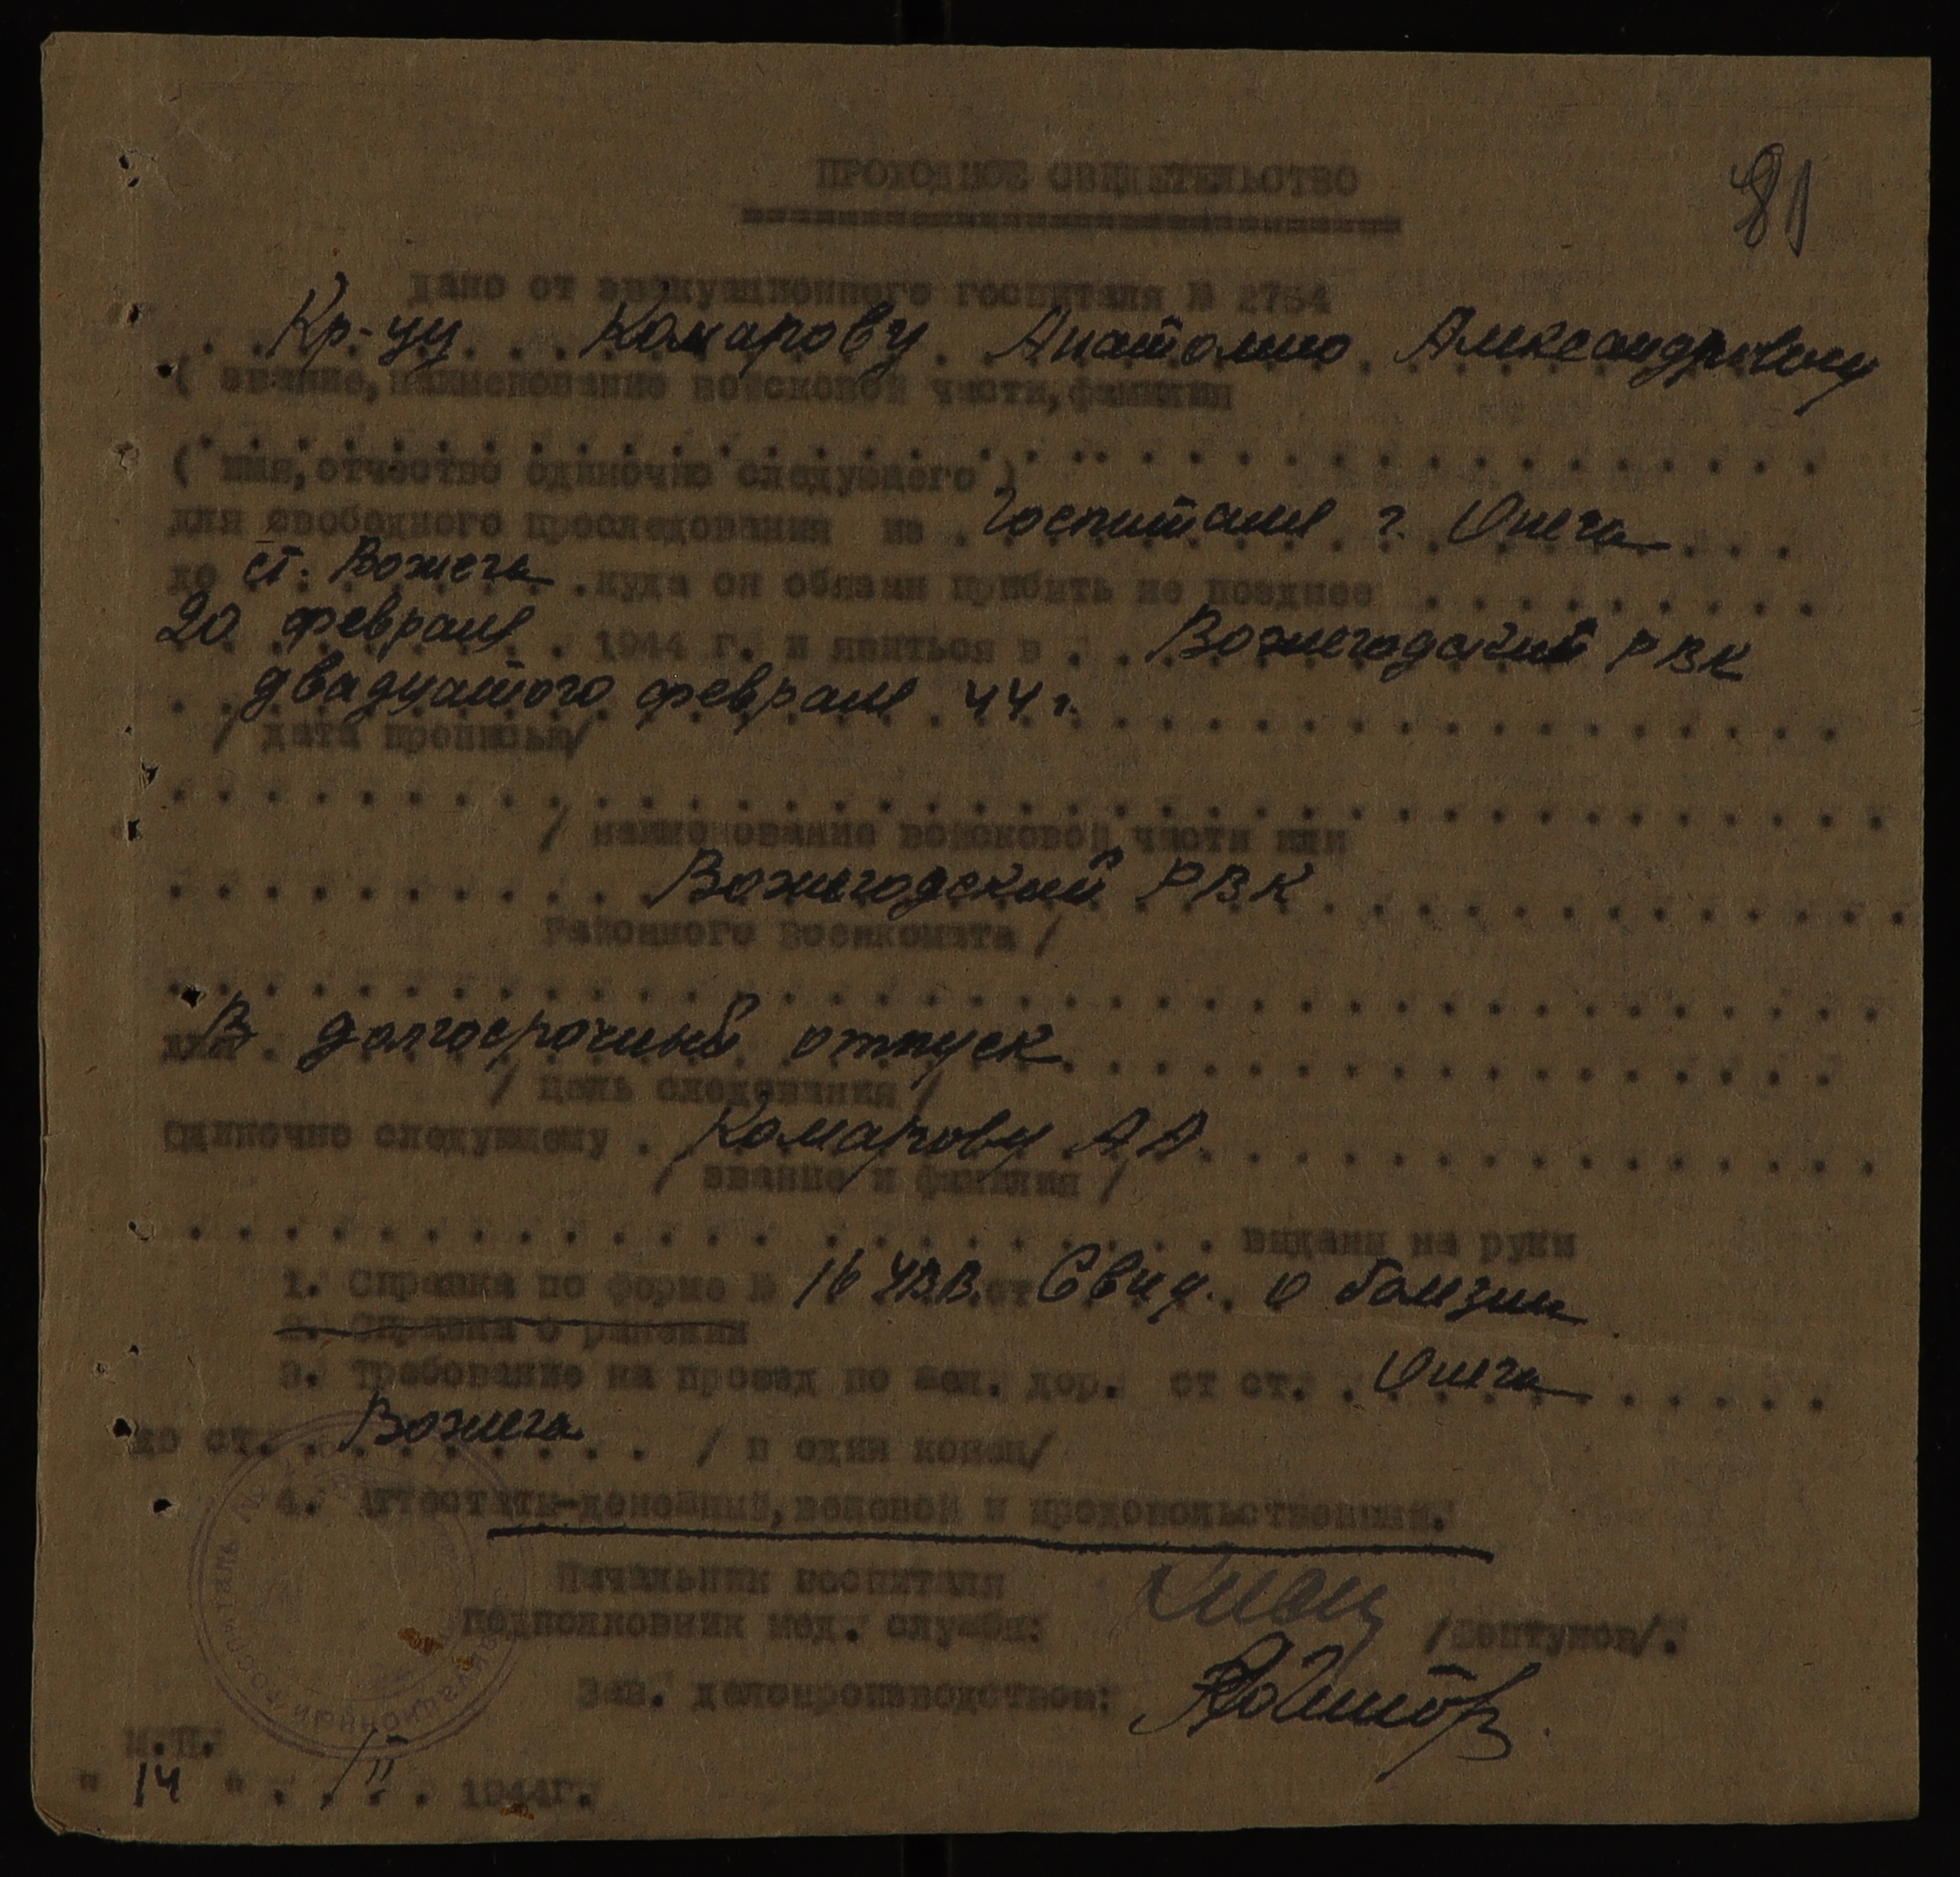 81
ПРОХОДНОЕ СВИДЕТЕЛЬСТВО
дано от эвакуационного госпиталя № 2754
Кр-цу Комарову Анатолию Александровичу
( звание, наименование войсковой части, фамилия
( имя, отчество одиночно следуемого )
для свободного проследования из Госпиталя г. Онега
до ст. Вожега куда он обязан прибыть не позднее
20 февраля 1944 г. и явиться в Вожегодский РВК
двадцатого февраля 44 г.
/ дата прописью/
/ наименование войсковой части или
Вожегодский РВК
Районного Военкомата /
для В долгосрочный отпуск
/ цель следования /
Одиночно следующему Комарову А А
/ звание и фамилия /
выдана на руки
1. Справка по форме № 16 УВВ. от Свид. о болезни
2. Справка о ранении
3. Требование на проезд по жел. дор. от ст. Онега
до ст. Вожега / в один конец/
4. Аттестаты-денежный, вещевой и продовольственный.
Начальник госпиталя
подполковник мед. службы:
Зав. делопроизводством:
ЭВАКУАЦИОННЫЙ ГОСПИТАЛЬ
М.П.
" 14 " /II 1944г.